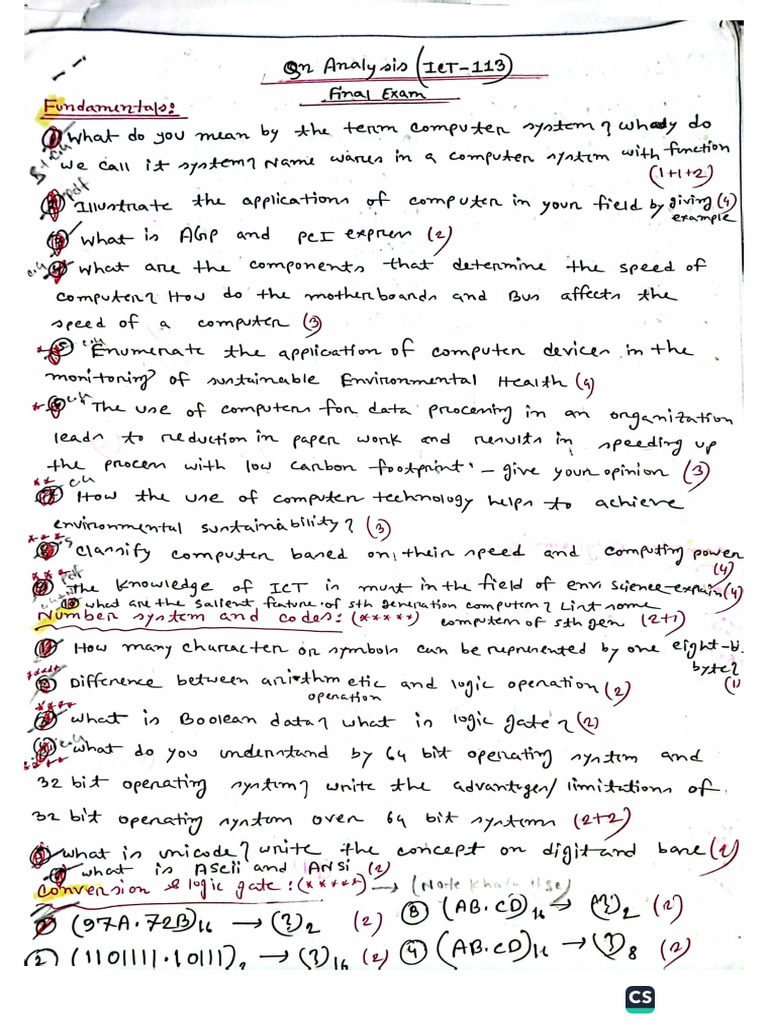 Qn Analysis (ICT-113)
Final Exam
Fundamentals:
① What do you mean by the term computer system? Why do
we call it system? Name wares in a computer system with function
(1+1+2)
② Illustrate the applications of computer in your field by giving (4)
example
③ What is AGP and PCI express (2)
④ What are the components that determine the speed of
computer? How do the motherboards and Bus affects the
speed of a computer (3)
⑤ Enumerate the application of computer devices in the
monitoring of sustainable Environmental Health (4)
⑥ The use of computers for data processing in an organization
leads to reduction in paper work and results in speeding up
the process with low carbon footprint' - give your opinion (3)
⑦ How the use of computer technology helps to achieve
environmental sustainability? (3)
⑧ Classify computer based on their speed and computing power
(4)
⑨ The knowledge of ICT is must in the field of envi science-explain (4)
⑩ what are the salient feature of 5th generation computer? List some
Number system and codes: (*****) computer of 5th gen (2+1)
⑪ How many character or symbols can be represented by one eight-b.
byte? (1)
Difference between arithmetic and logic operation (2)
operation
What is Boolean data? what is logic gate? (2)
What do you understand by 64 bit operating system and
32 bit operating system? write the advantages/limitations of
32 bit operating system over 64 bit systems (2+2)
what is unicode? write the concept on digit and base (2)
what is ASCii and ANSi (2)
Conversion & logic gate: (*****) → (Note Khata Use)
① (97A.72B)16 → (?)2 (2) ③ (AB.CD)16 → (?)2 (2)
② (1101111.10111)2 → (?)16 (2) ④ (AB.CD)16 → (?)8 (2)
CS